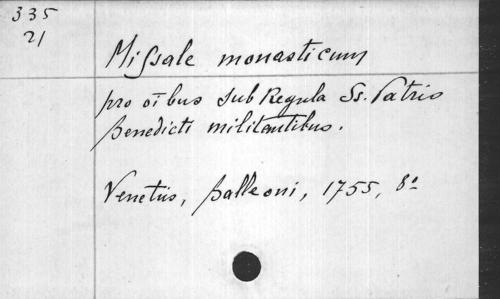 335
21
Missale monasticum
pro oībus sub Regula Ss. Patris
Benedicti militantibus.
Venetiis, Balleoni, 1755, 8º